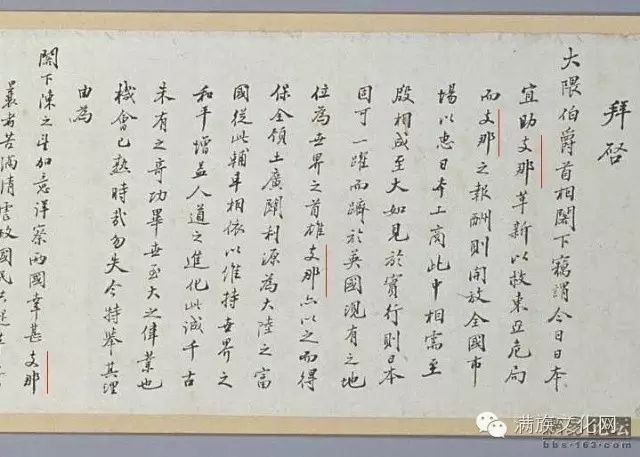 拜啓
大隈伯爵首相閣下竊謂今日日本
宜助支那革新以救東亞危局
而支那之報酬則開放全國市
場以惠日本工商此中相需至
殷相成至大如見於實行則日本
固可一躍而躋於英國現有之地
位為世界之首雄支那亦以之而得
保全領土廣闢利源為大陸之富
國從此輔車相依以維持世界之
和平增益人道之進化此誠千古
未有之奇功畢世至大之偉業也
機會已熟時哉勿失今特舉其理
由為
閣下陳之望加意詳察兩國幸甚支那
曩者苦滿清虐政國民共起
满族文化网
bbs·163.com